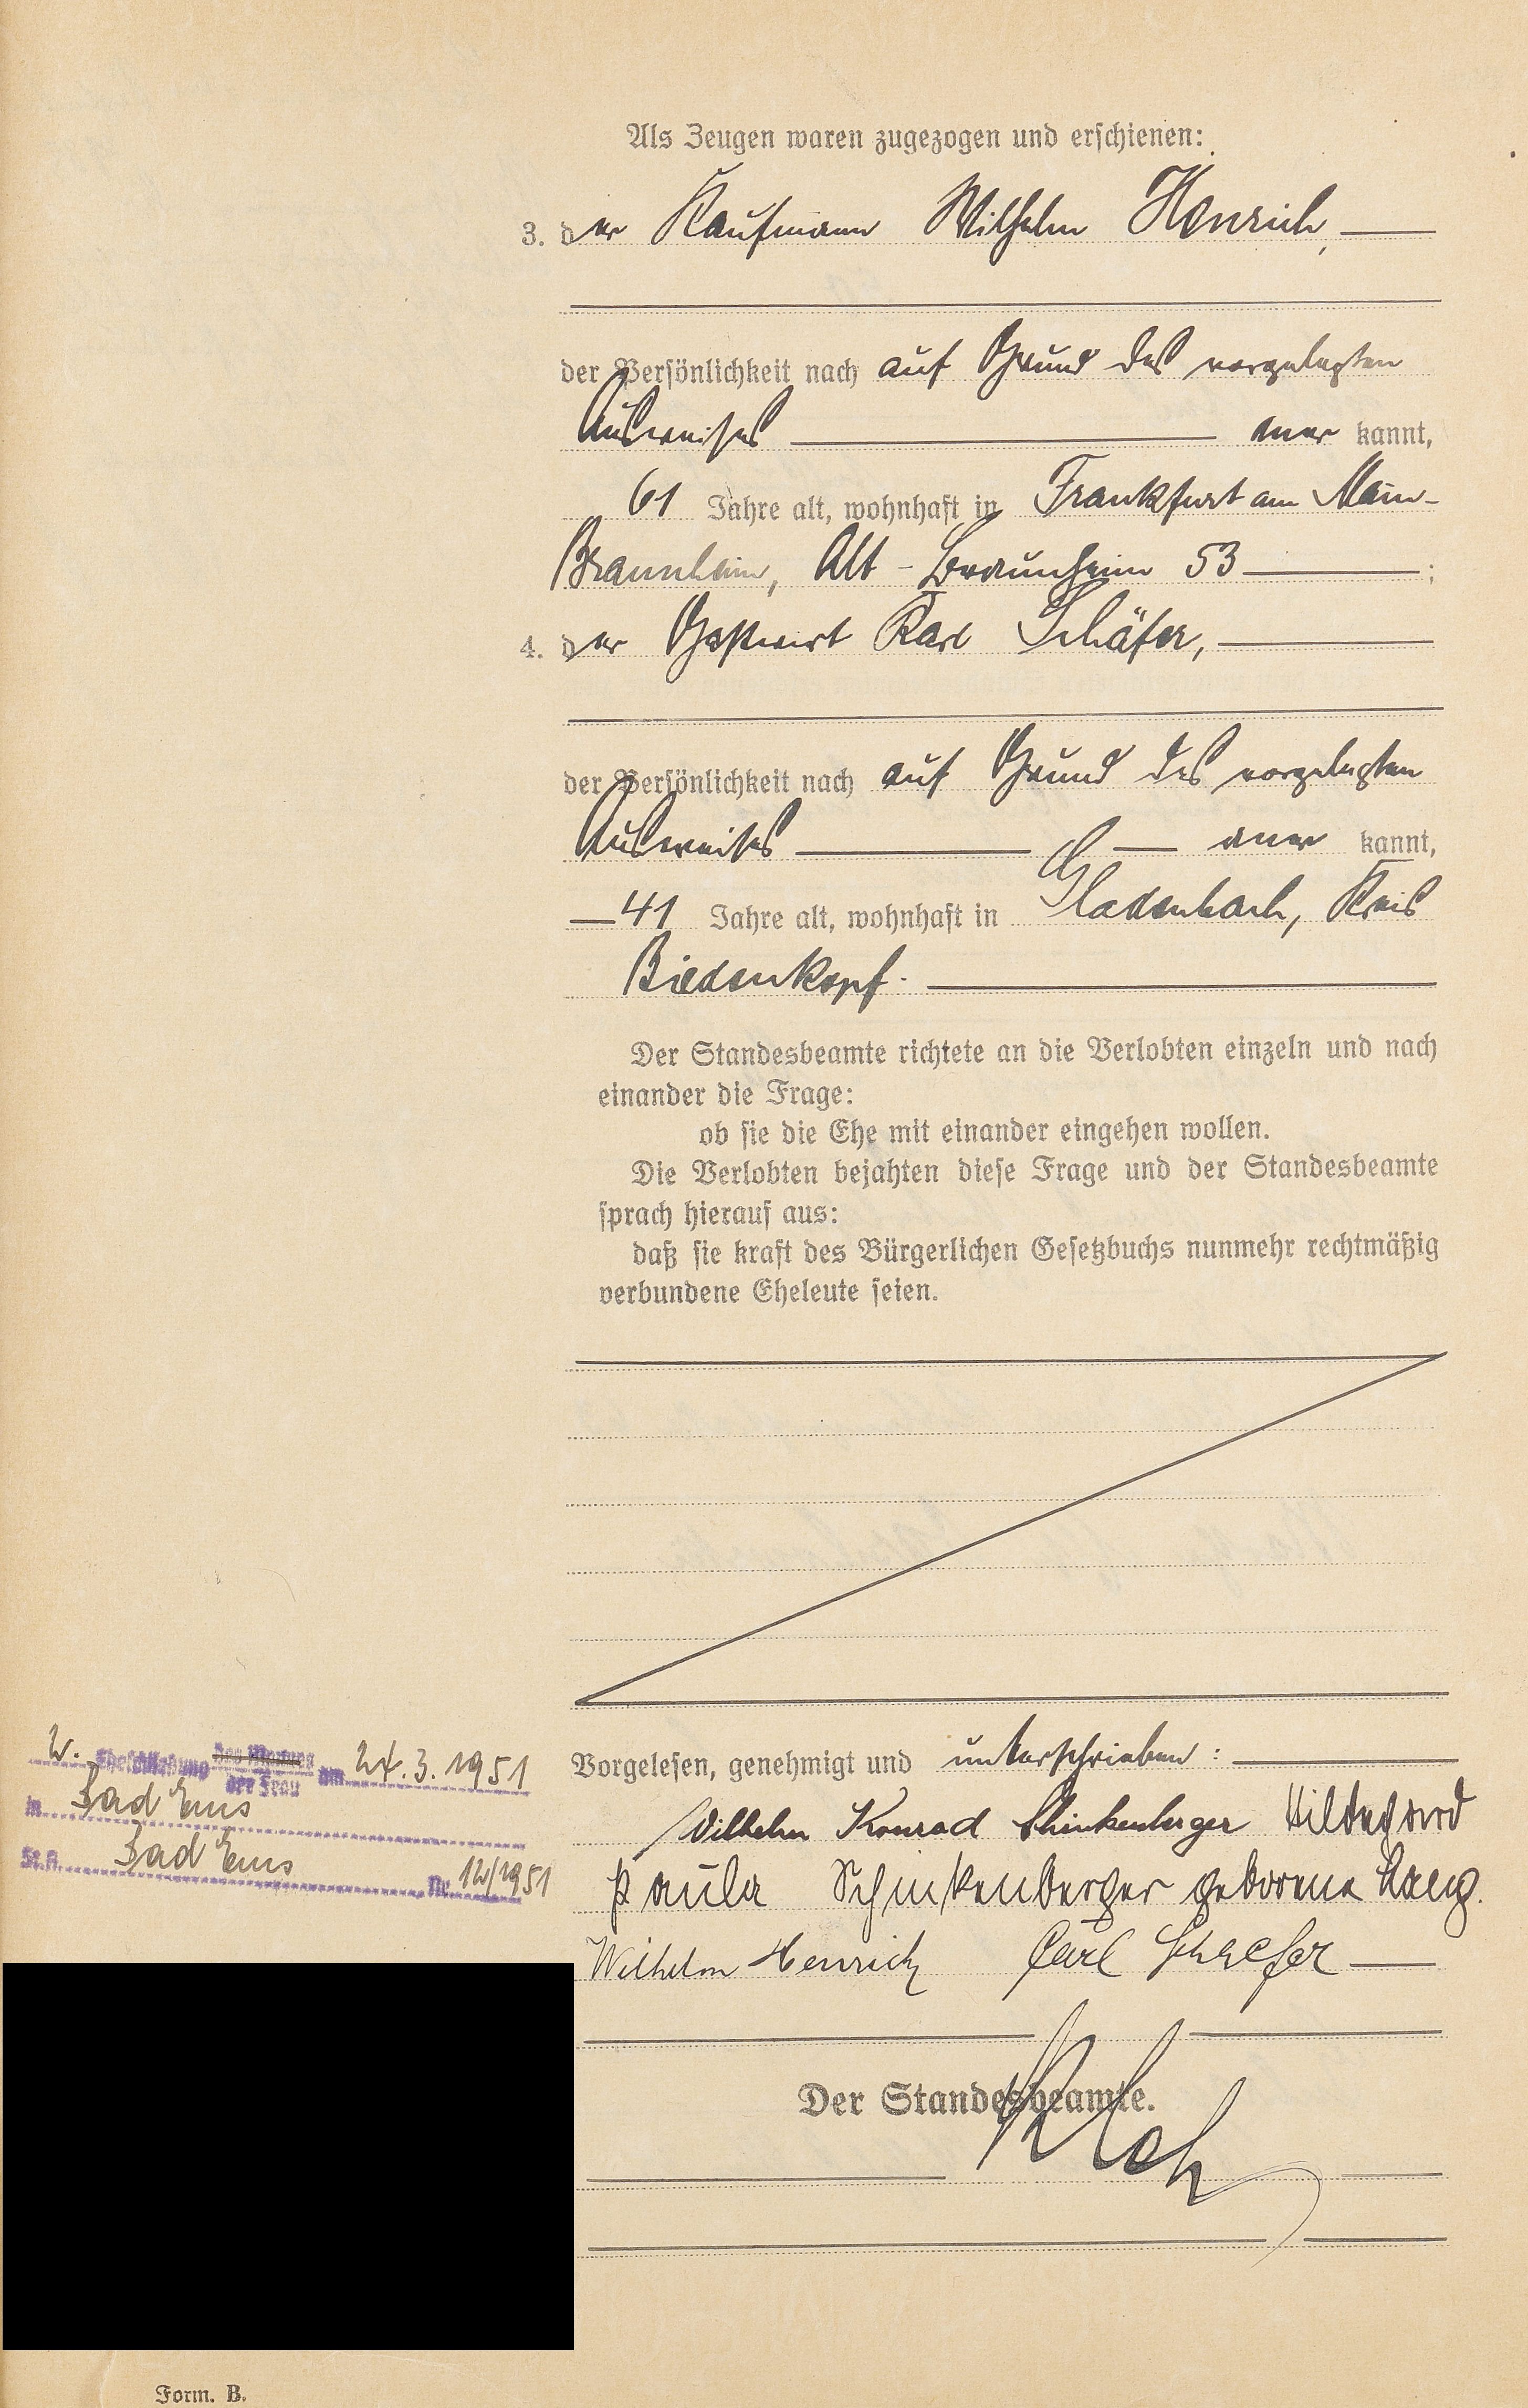 Als Zeugen waren zugezogen und erschienen:
3. der Kaufmann Wilhelm Henrich,
der Persönlichkeit nach auf Grund des vorgelegten
Ausweises aner kannt,
61 Jahre alt, wohnhaft in Frankfurt am Main-
Braunheim, Alt-Braunheim 53 ;
4. der Gastwirt Karl Schäfer,
der Persönlichkeit nach auf Grund des vorgelegten
Ausweises aner kannt,
41 Jahre alt, wohnhaft in Gladenbach, Kreis
Biedenkopf.
Der Standesbeamte richtete an die Verlobten einzeln und nach
einander die Frage:
ob sie die Ehe mit einander eingehen wollen.
Die Verlobten bejahten diese Frage und der Standesbeamte
sprach hierauf aus:
daß sie kraft des Bürgerlichen Gesetzbuchs nunmehr rechtmäßig
verbundene Eheleute seien.
Vorgelesen, genehmigt und unterschrieben:
Wilhelm Konrad Schinkenberger Hildegard
Paula Schinkenberger geborene Lang.
Wilhelm Henrich Carl Schaefer
Der Standesbeamte.
Koch
2. Eheschließung des Mannes der Frau am 24.3.1951
in Bad Ems
St.A. Bad Ems Nr. 12/1951
Form. B.